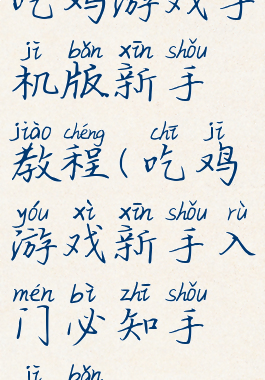 吃鸡游戏手
jī bǎn xīn shǒu
机版新手
jiào chéng chī jī
教程(吃鸡
yóu xì xīn shǒu rù
游戏新手入
mén bì zhī shǒu
门必知手
jī bǎn